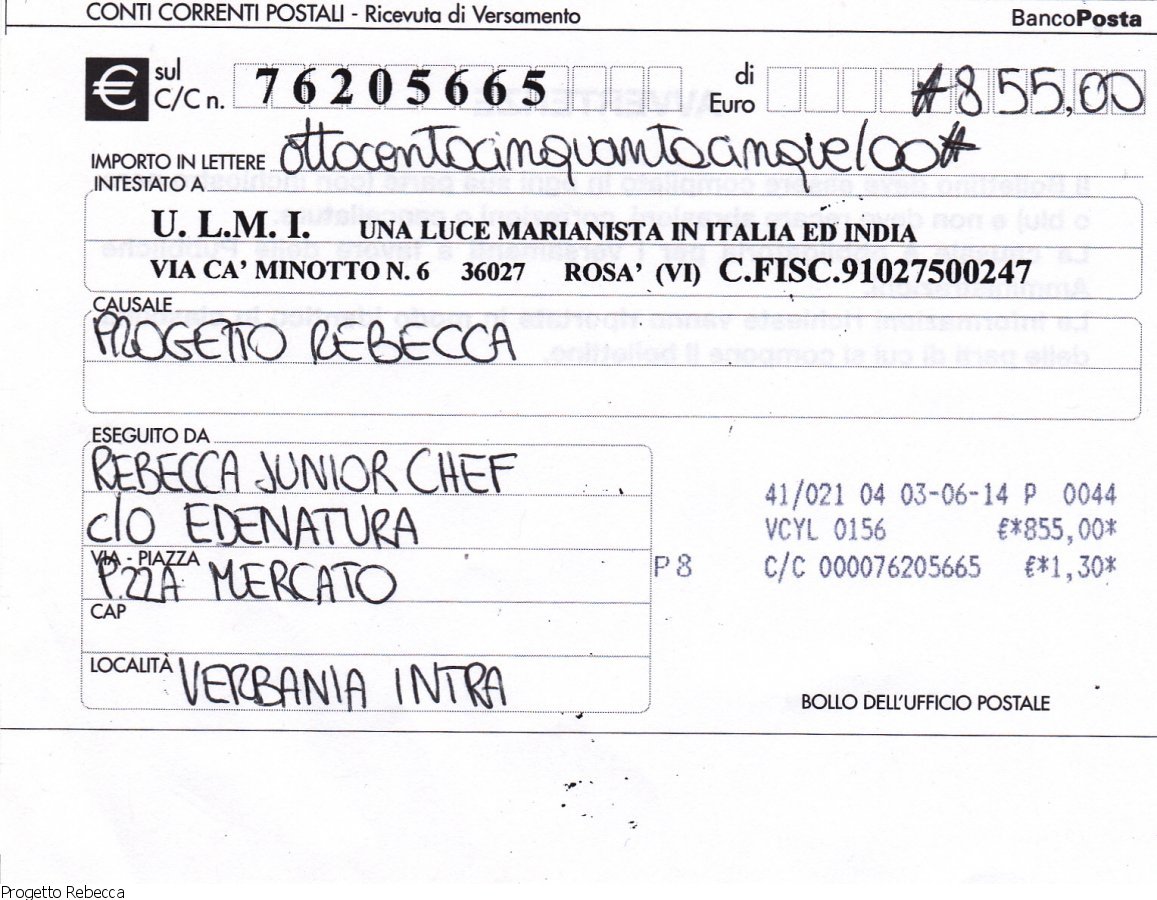 CONTI CORRENTI POSTALI - Ricevuta di Versamento BancoPosta
€ sul C/C n. 76205665 di Euro #855,00
IMPORTO IN LETTERE ottocentocinquantacinque/00#
INTESTATO A
U. L.M. I. UNA LUCE MARIANISTA IN ITALIA ED INDIA
VIA CA' MINOTTO N. 6 36027 ROSA' (VI) C.FISC.91027500247
CAUSALE
PROGETTO REBECCA
ESEGUITO DA
REBECCA JUNIOR CHEF
c/o EDENATURA
VIA - PIAZZA
P.ZZA MERCATO
CAP
LOCALITÀ VERBANIA INTRA
41/021 04 03-06-14 P 0044
VCYL 0156 €*855,00*
P8 C/C 000076205665 €*1,30*
BOLLO DELL'UFFICIO POSTALE
Progetto Rebecca